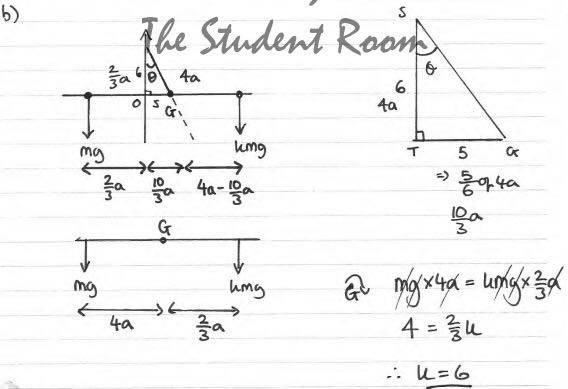 b)
The Student Room
S
2/3 a 6 θ 4a
θ
6
4a
O 5 G
mg kmg
T 5 G
2/3 a 10/3 a 4a - 10/3 a
⇒ 5/6 of 4a
10/3 a
G
mg kmg
4a 2/3 a
G mg × 4a = kmg × 2/3 a
4 = 2/3 k
∴ k = 6